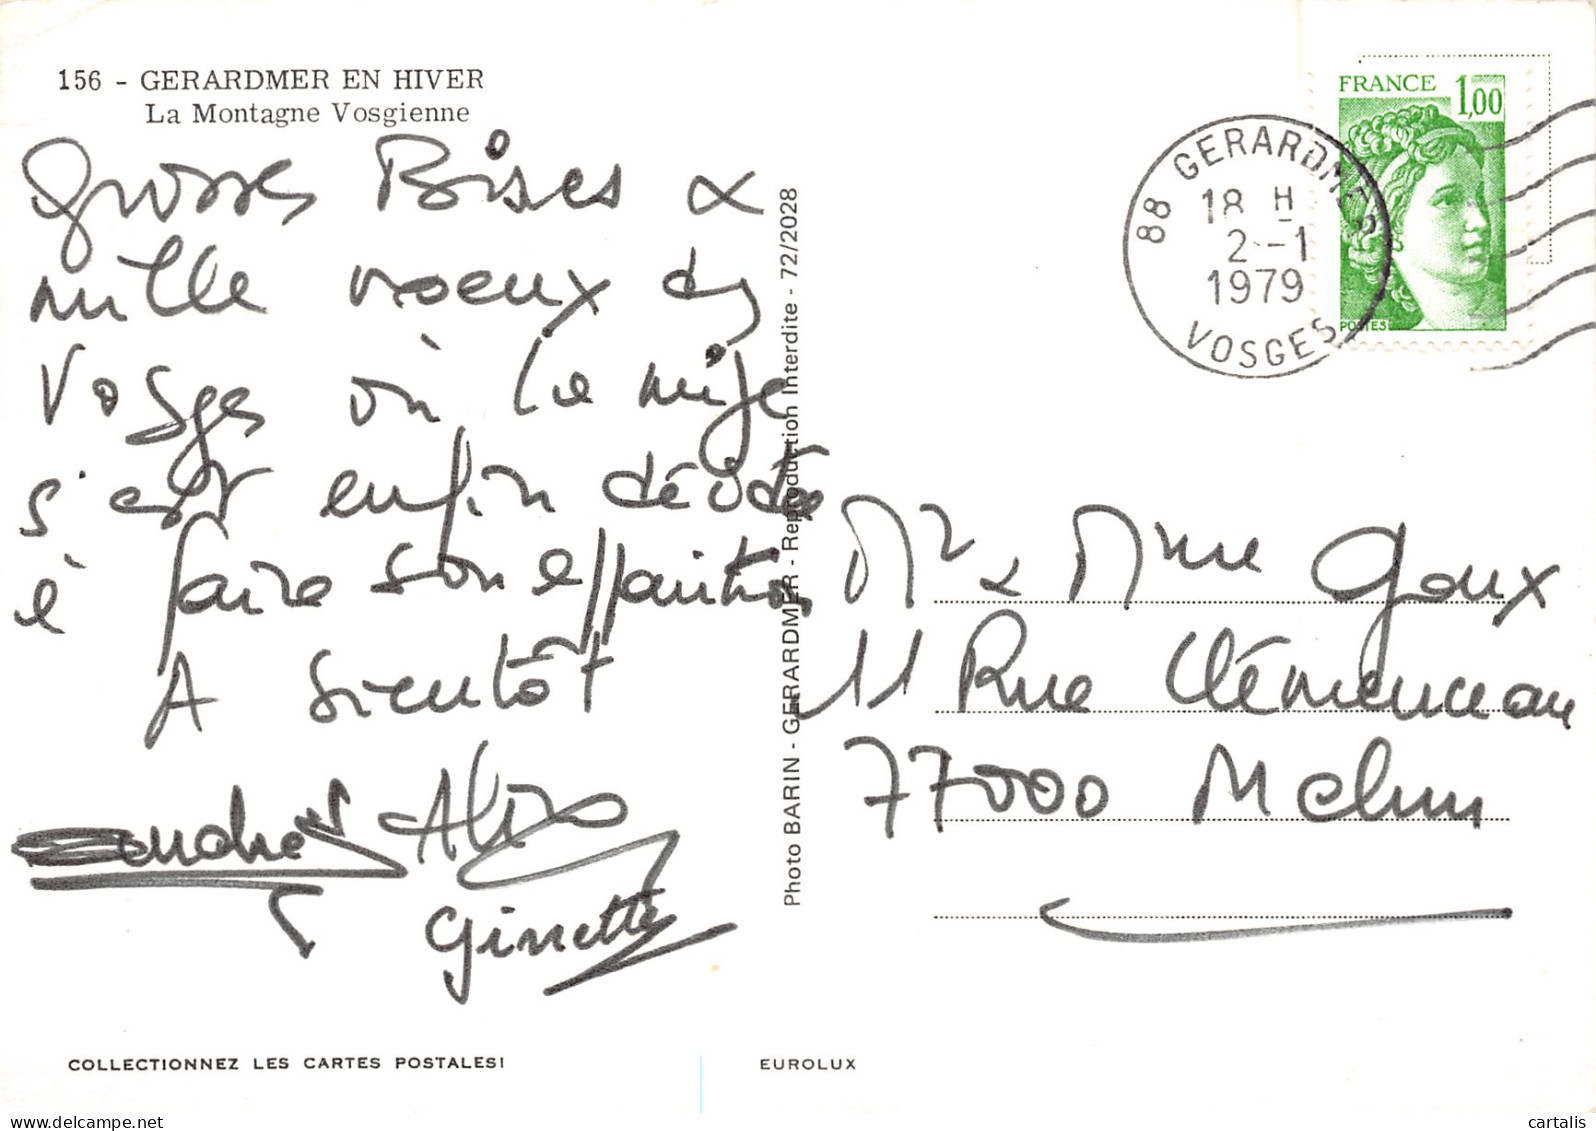 156 - GERARDMER EN HIVER
La Montagne Vosgienne
Grosses Bises &
mille voeux des
Vosges où la neige
s'est enfin décidée
à faire son apparition
A bientôt
Ginette
COLLECTIONNEZ LES CARTES POSTALES!
Photo BARIN - GERARDMER - Reproduction Interdite - 72/2028
EUROLUX
FRANCE 1,00
POSTES
88 GERARDMER
18 H
2 - 1
1979
VOSGES
Mr & Mme Goux
11 Rue Clémenceau
77000 Melun
cartalis
www.delcampe.net